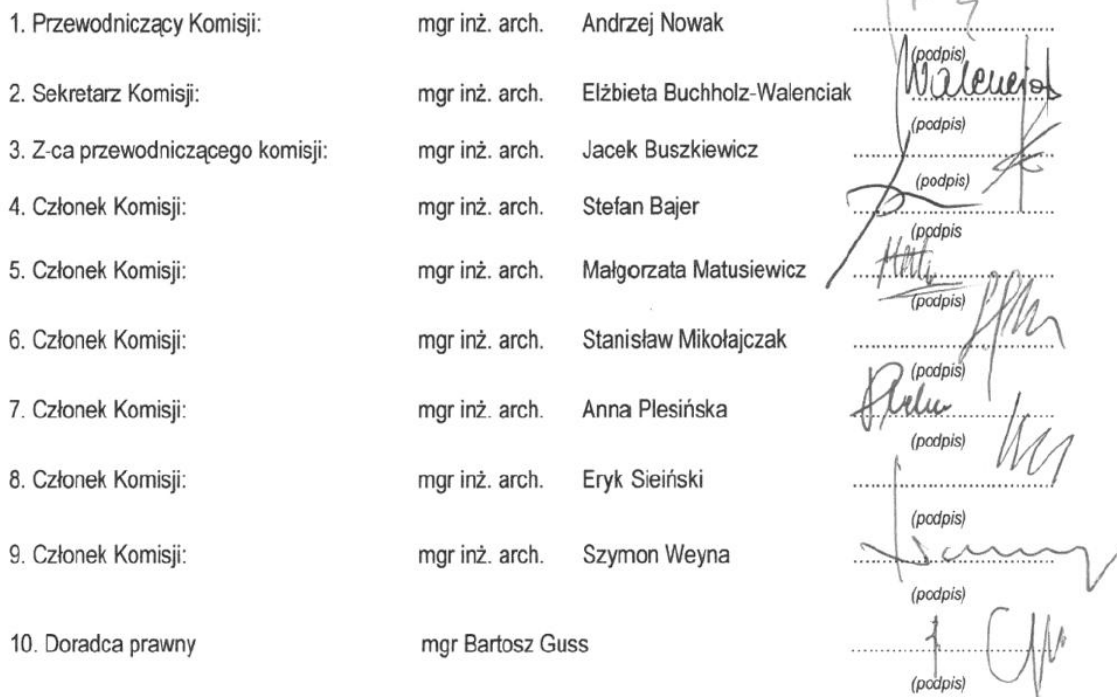 1. Przewodniczący Komisji: mgr inż. arch. Andrzej Nowak
(podpis)
2. Sekretarz Komisji: mgr inż. arch. Elżbieta Buchholz-Walenciak
(podpis)
3. Z-ca przewodniczącego komisji: mgr inż. arch. Jacek Buszkiewicz
(podpis)
4. Członek Komisji: mgr inż. arch. Stefan Bajer
(podpis
5. Członek Komisji: mgr inż. arch. Małgorzata Matusiewicz
(podpis)
6. Członek Komisji: mgr inż. arch. Stanisław Mikołajczak
(podpis)
7. Członek Komisji: mgr inż. arch. Anna Plesińska
(podpis)
8. Członek Komisji: mgr inż. arch. Eryk Sieiński
(podpis)
9. Członek Komisji: mgr inż. arch. Szymon Weyna
(podpis)
10. Doradca prawny mgr Bartosz Guss
(podpis)